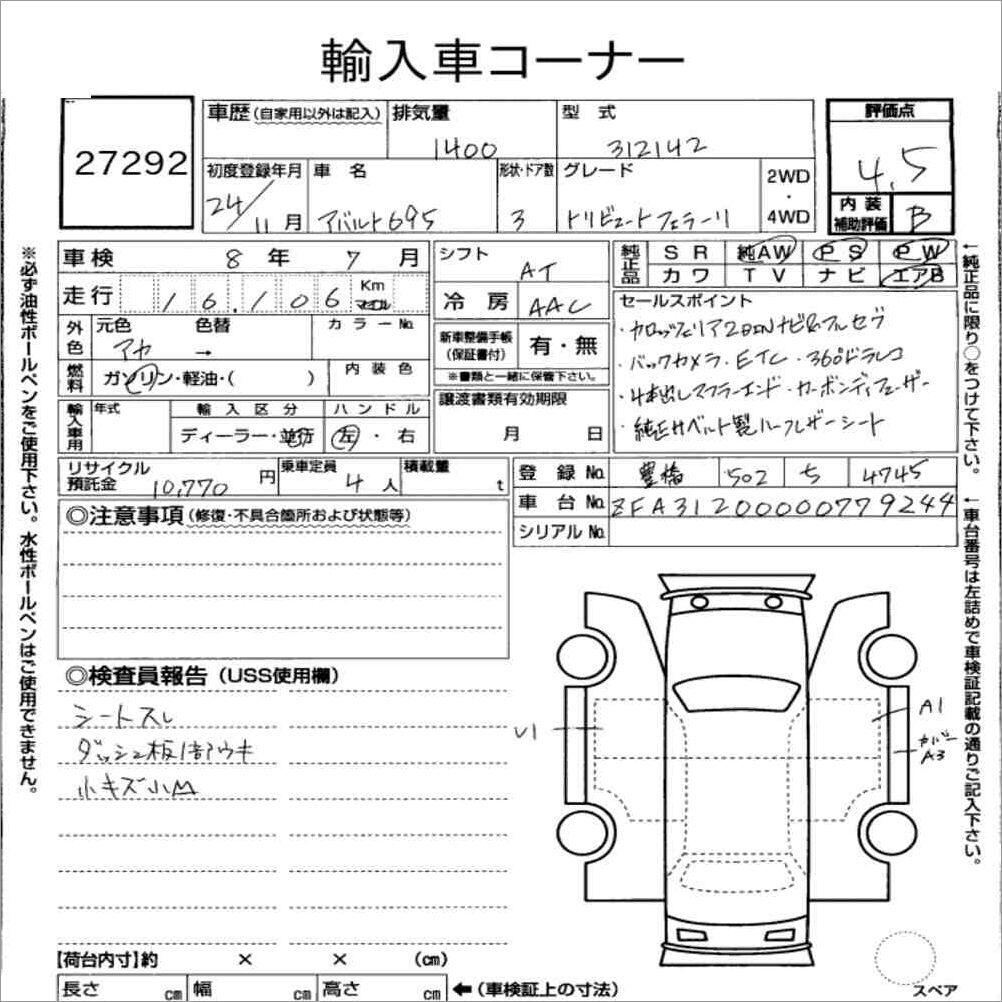 輸入車コーナー
27292
車歴(自家用以外は記入) 排気量 1400 型式 312142 評価点 4.5
初度登録年月 24/11月 車名 アバルト695 形状・ドア数 3 グレード トリビュートフェラーリ 2WD・4WD 内装補助評価 B
車検 8年 7月 シフト AT 純正品 SR 純AW PS PW
カワ TV ナビ エアB
走行 16,106 Km マイル 冷房 AAC
外色 元色 アカ 色替 → カラーNo.
新車整備手帳(保証書付) 有・無
※書類と一緒に保管下さい。
燃料 ガソリン・軽油・( ) 内装色
譲渡書類有効期限 月 日
輸入車用 年式 輸入区分 ディーラー・並行 ハンドル 左・右
セールスポイント
・カロッツェリア2DINナビ&フルセグ
・バックカメラ・ETC・360°ドラレコ
・4本出しマフラーエンド・カーボンディフューザー
・純正サベルト製ハーフレザーシート
リサイクル預託金 10,770円 乗車定員 4人 積載量 t
登録No. 豊橋 502 ち 4745
車台No. ZFA31200000779244
シリアルNo.
◎注意事項(修復・不具合箇所および状態等)
◎検査員報告(USS使用欄)
シートスレ
ダッシュ板1部ウキ
小キズ小凹
U1
A1
カバー
A3
スペア
【荷台内寸】約 × × (cm)
長さ cm 幅 cm 高さ cm ←(車検証上の寸法)
※必ず油性ボールペンをご使用下さい。水性ボールペンはご使用できません。
←純正品に限り○をつけて下さい。
←車台番号は左詰めで車検証記載の通りご記入下さい。